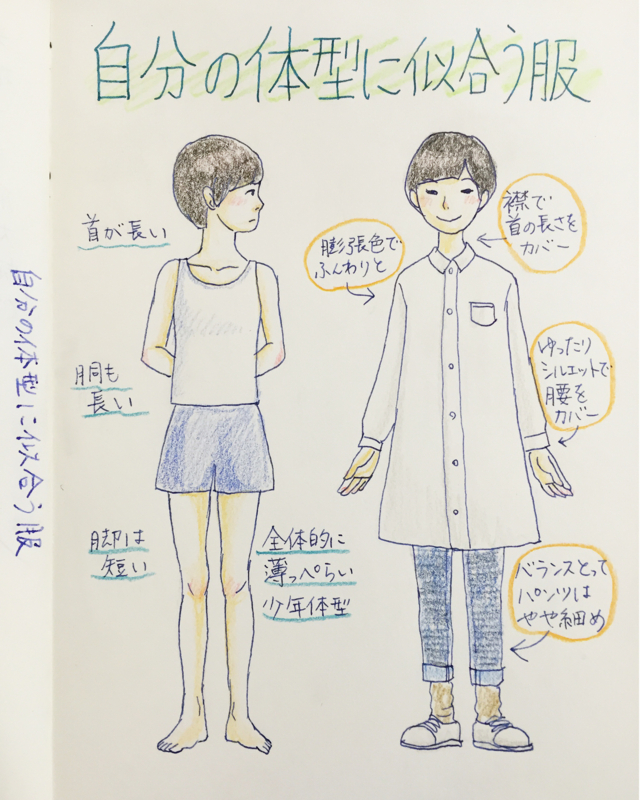 自分の体型に似合う服
首が長い
胴も
長い
脚は
短い
全体的に
薄っぺらい
少年体型
膨張色で
ふんわりと
襟で
首の長さを
カバー
ゆったり
シルエットで
腰を
カバー
バランスとって
パンツは
やや細め
自分の体型に似合う服